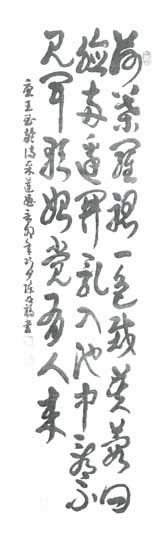 荷葉羅裙一色裁芙蓉向
臉兩邊開亂入池中看不
見聞歌始覺有人來
王昌齡詩采蓮曲辛卯年夕書